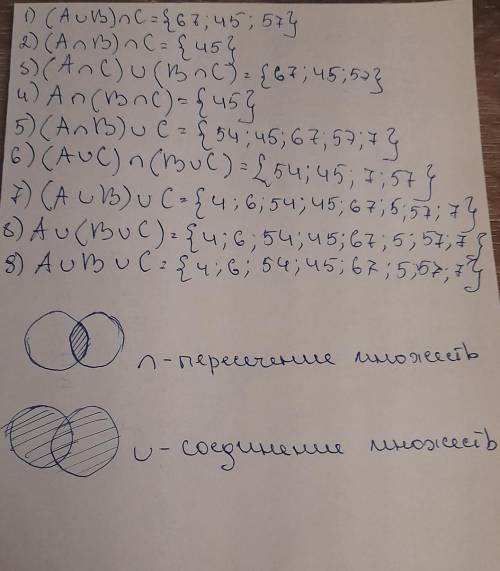 1) (A∪B)∩C={67; 45; 57}
2) (A∩B)∩C={45}
3) (A∩C)∪(B∩C)={67; 45; 57}
4) A∩(B∩C)={45}
5) (A∩B)∪C={54; 45; 67; 57; 7}
6) (A∪C)∩(B∪C)={54; 45; 7; 57}
7) (A∪B)∪C={4; 6; 54; 45; 67; 5; 57; 7}
8) A∪(B∪C)={4; 6; 54; 45; 67; 5; 57; 7}
9) A∪B∪C={4; 6; 54; 45; 67; 5; 57; 7}
∩-пересечение множеств
∪-соединение множеств